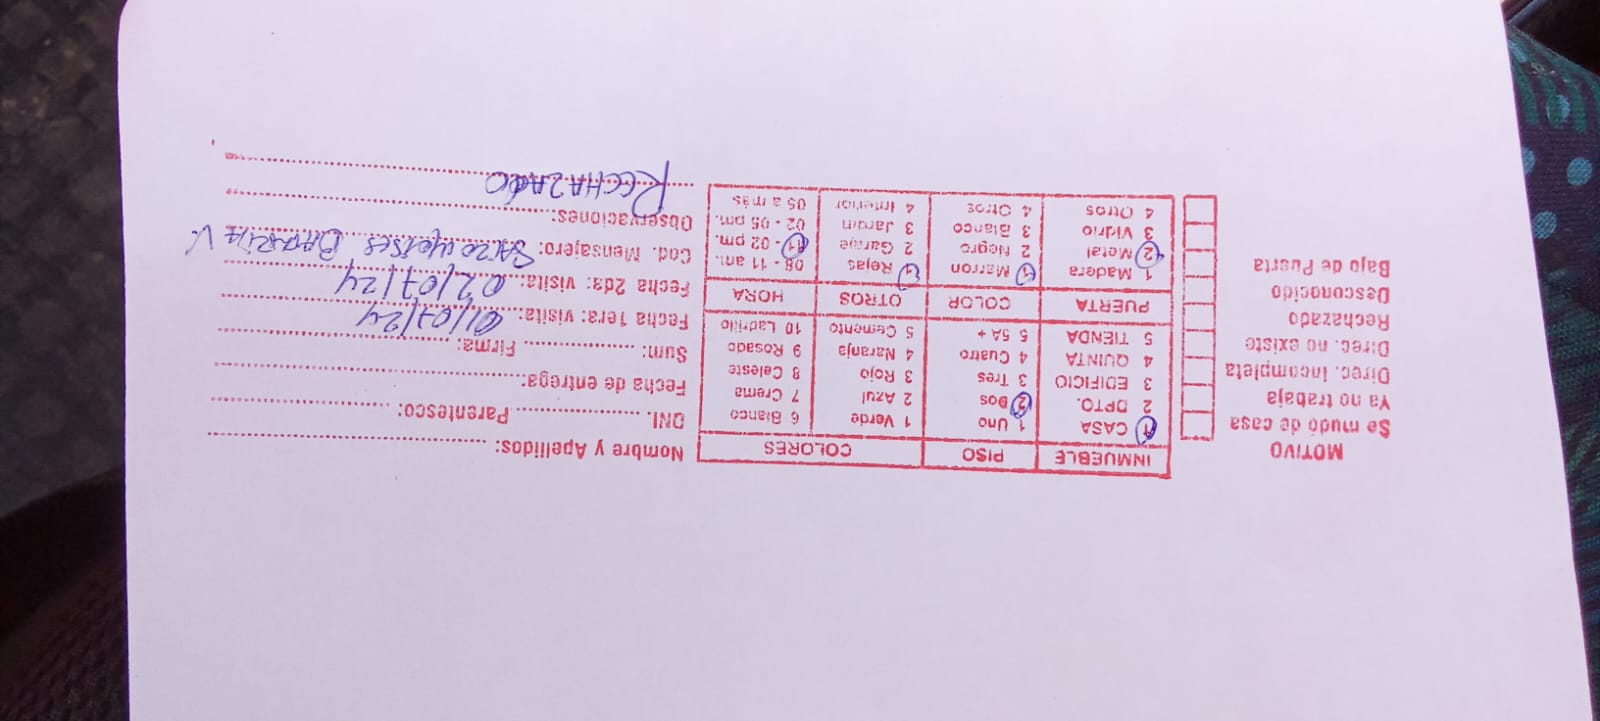 MOTIVO
Se mudó de casa
Ya no trabaja
Direc. Incompleta
Direc. no existe
Rechazado
Desconocido
Bajo de Puerta
INMUEBLE PISO COLORES
1 CASA 1 Uno 1 Verde 6 Blanco
2 DPTO. 2 Dos 2 Azul 7 Crema
3 EDIFICIO 3 Tres 3 Rojo 8 Celeste
4 QUINTA 4 Cuatro 4 Naranja 9 Rosado
5 TIENDA 5 5A + 5 Cemento 10 Ladrillo
PUERTA COLOR OTROS HORA
1 Madera 1 Marron 1 Rejas 08 - 11 am.
2 Metal 2 Negro 2 Garaje 11 - 02 pm.
3 Vidrio 3 Blanco 3 Jardin 02 - 05 pm.
4 Otros 4 Otros 4 Interior 05 a más
Nombre y Apellidos:
DNI. Parentesco:
Fecha de entrega:
Sum: Firma:
Fecha 1era: visita: 01/07/24
Fecha 2da: visita: 02/07/24
Cod. Mensajero:
Observaciones:
RECHAZADO